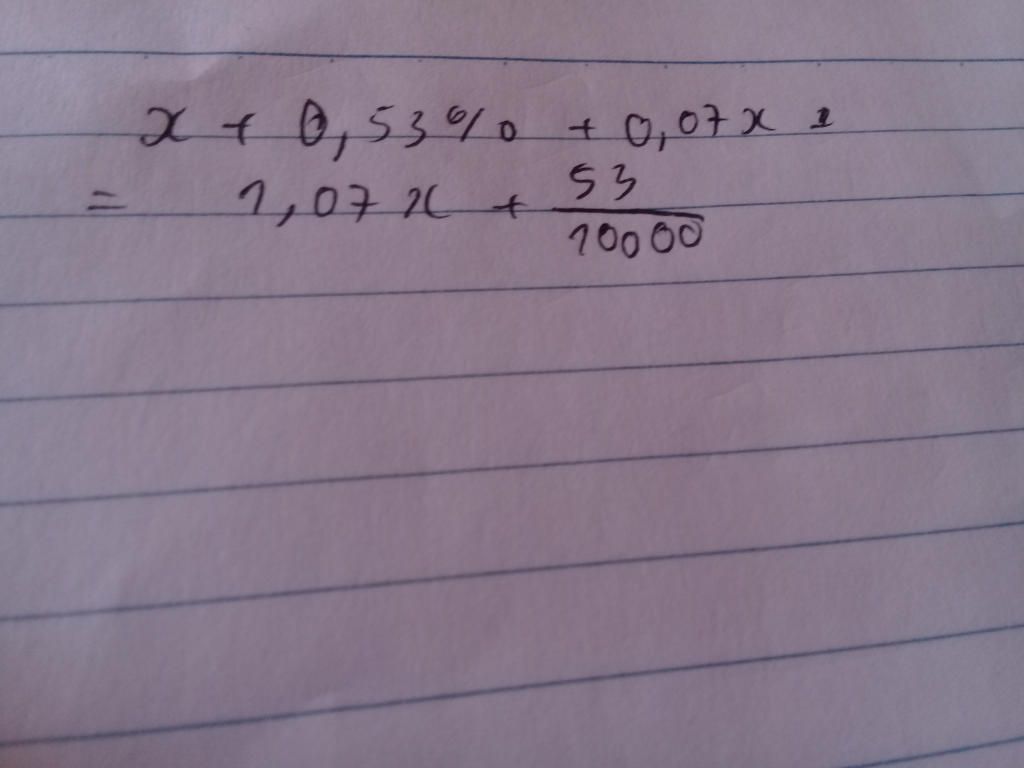 x + 0,53% + 0,07x 1
= 1,07x + 53/10000